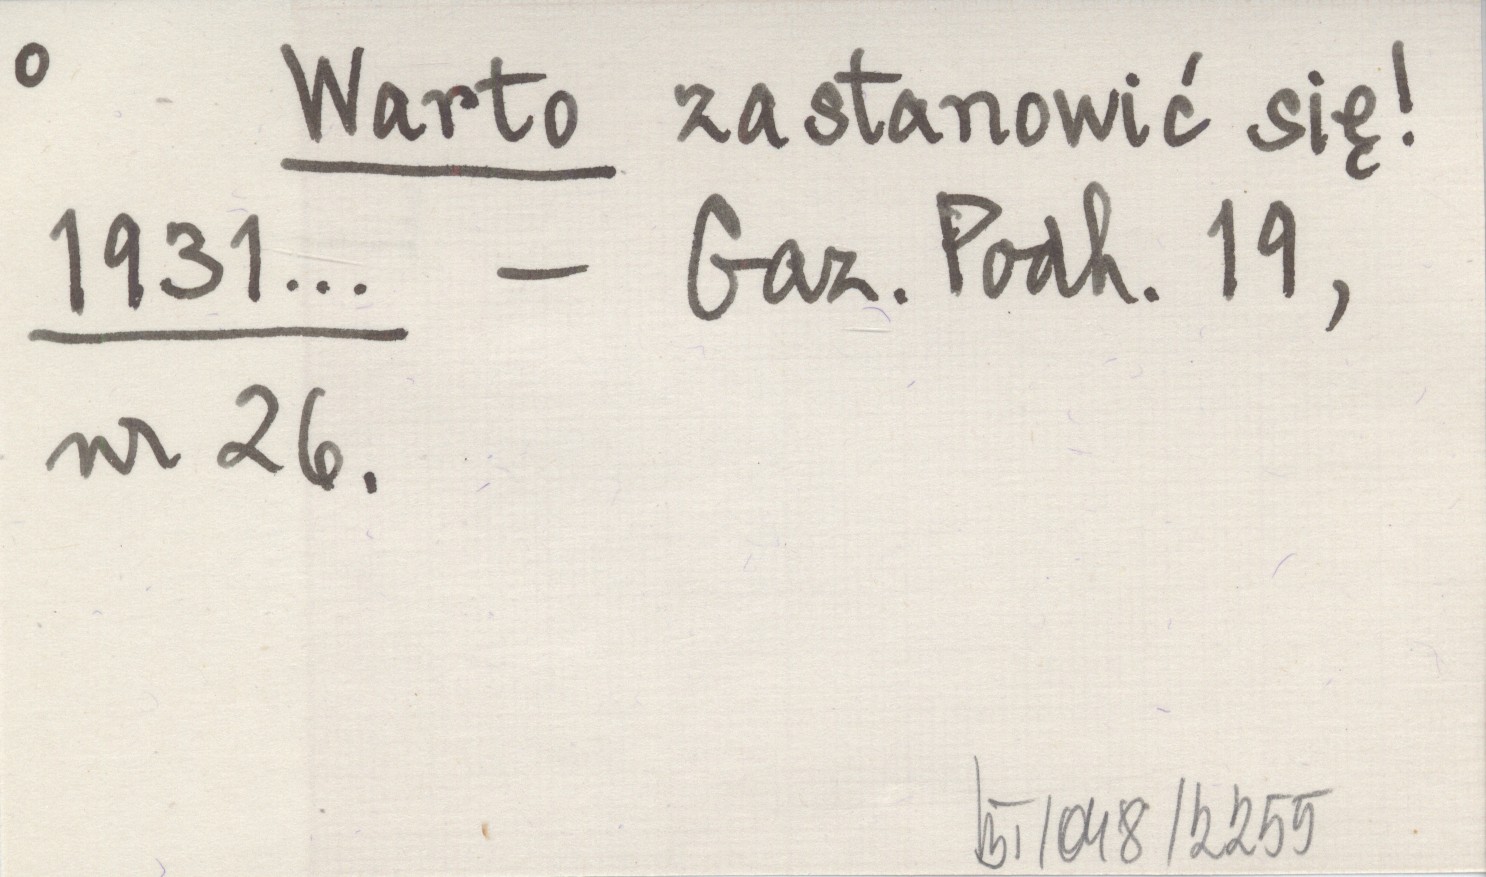 o Warto zastanowić się!
1931... – Gaz. Podh. 19,
nr 26.
/048/2255